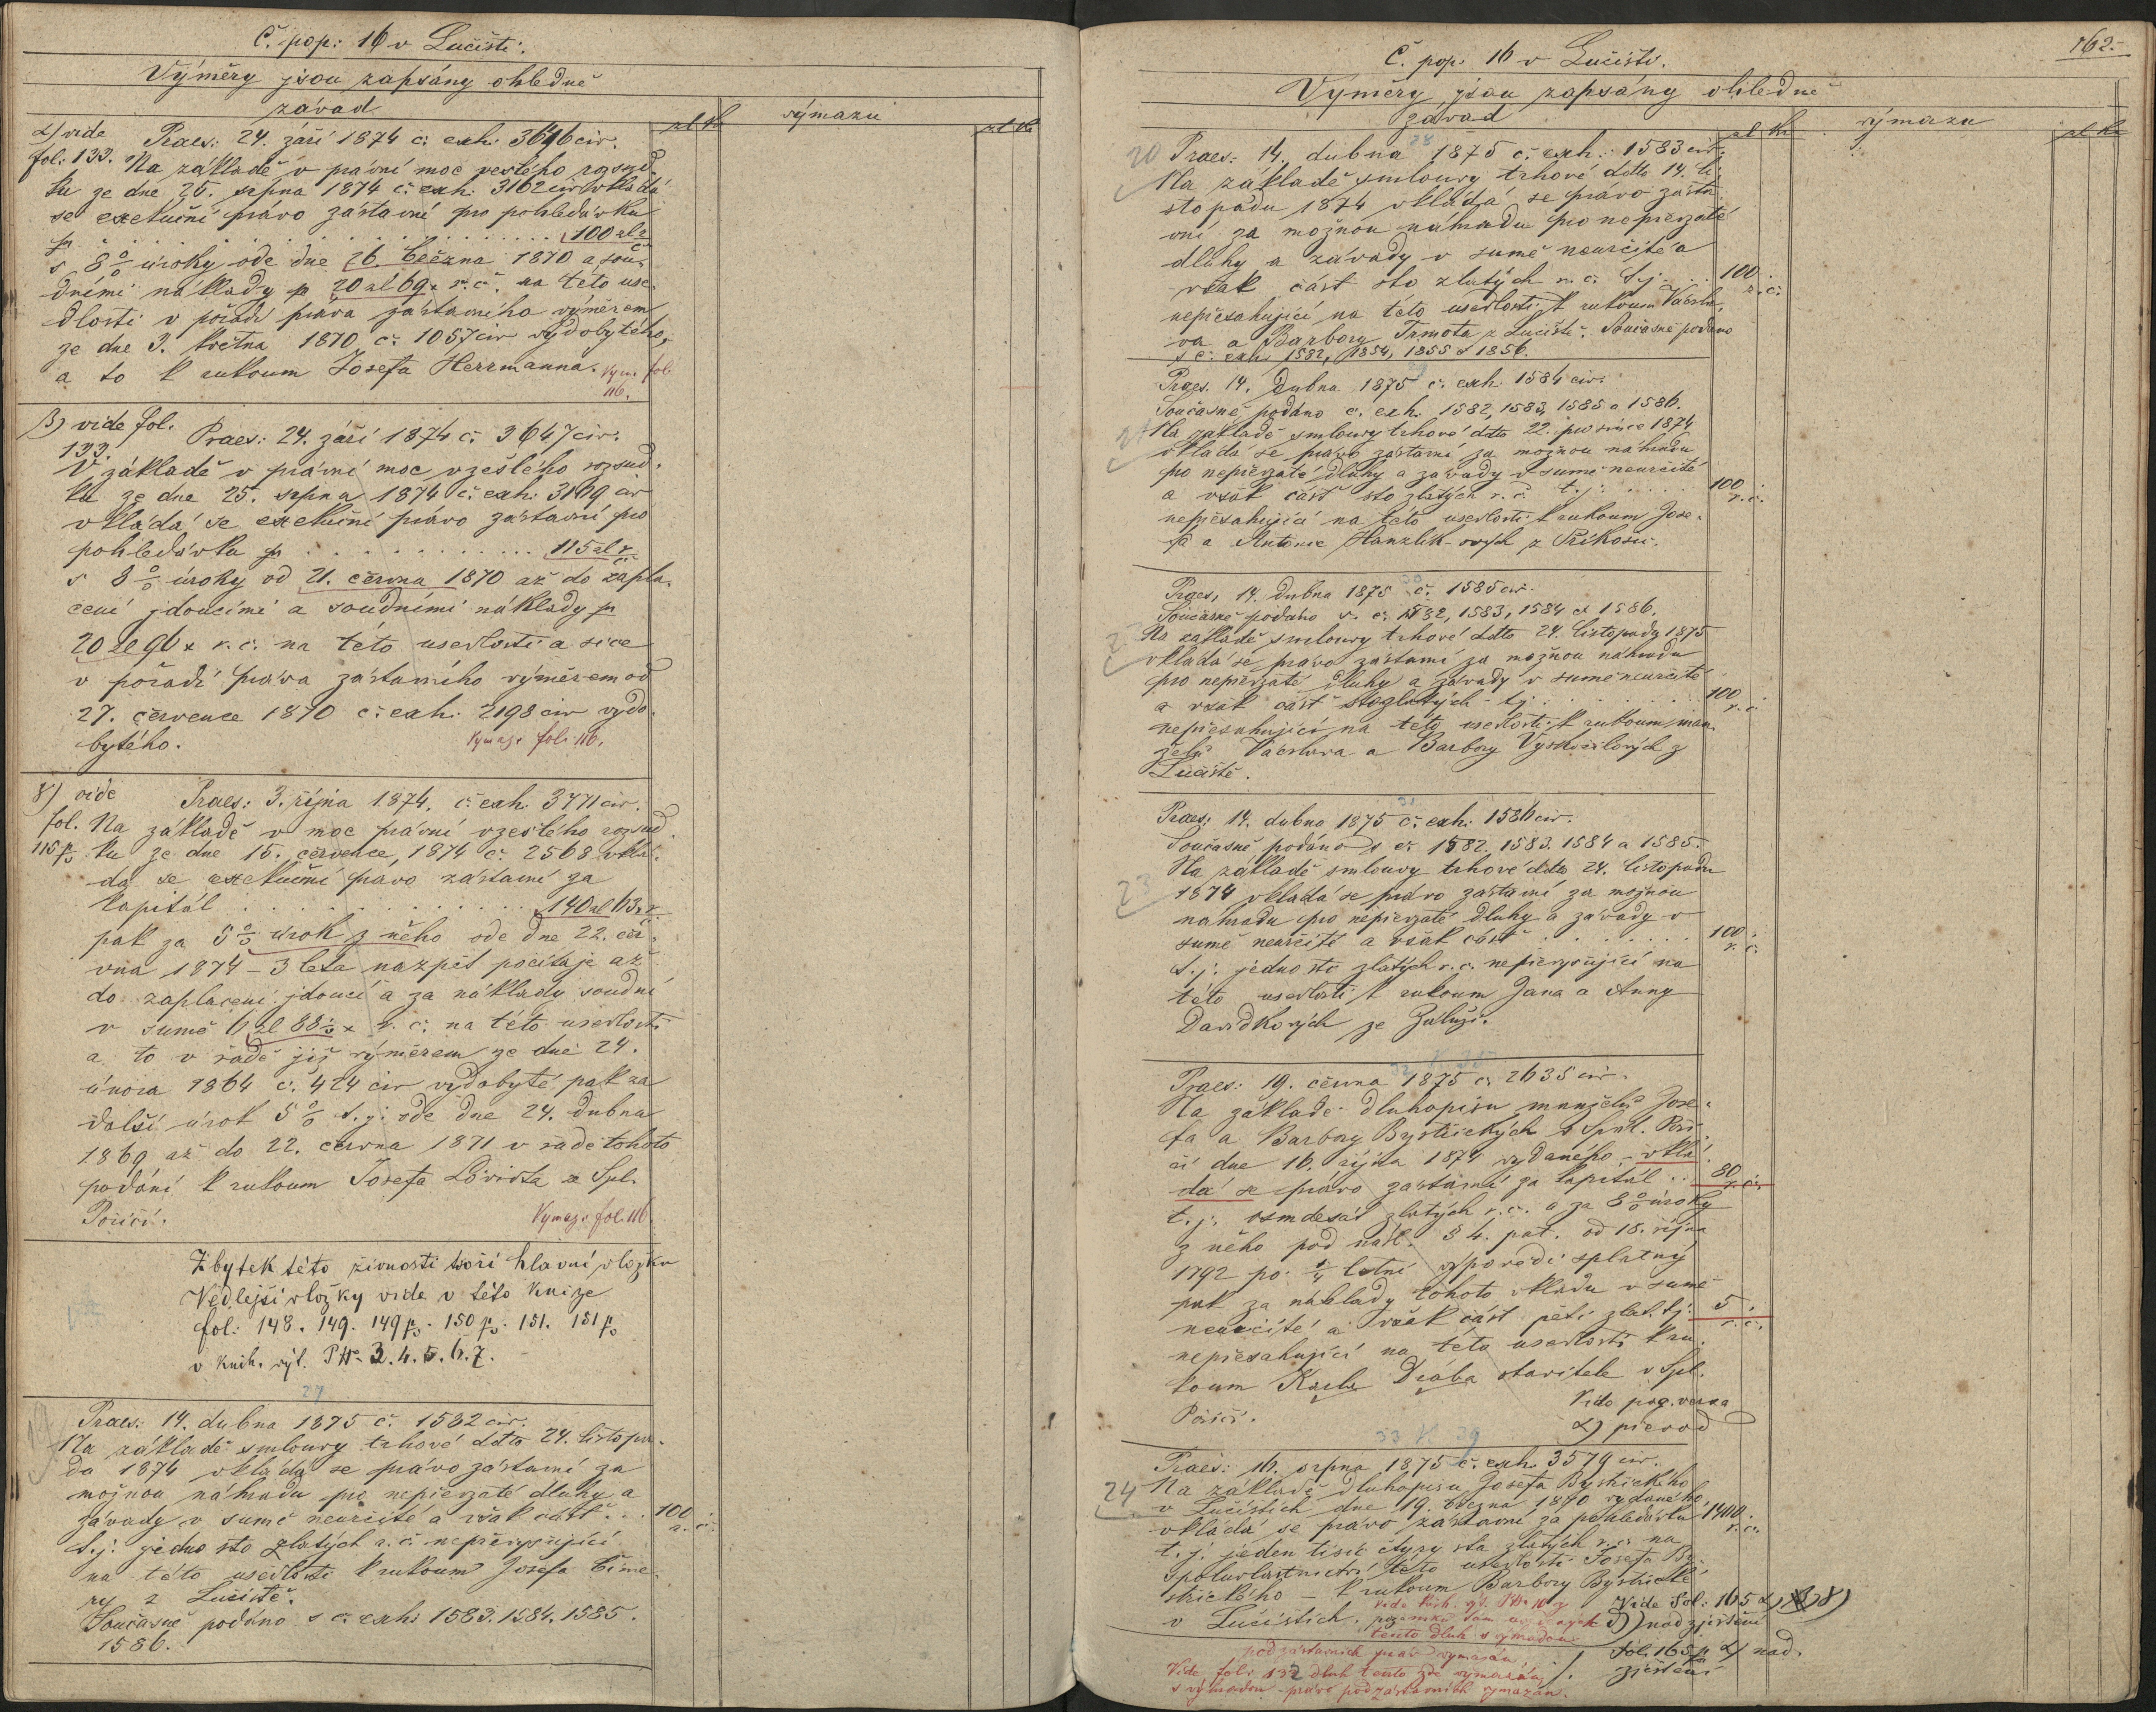 Č. pop: 16 v Lučišti.
Výměry jsou zapsány ohledně
závad
zl kr
výmazu
zl kr
α) vide
fol: 133.
Praes: 24. září 1874 č: exh: 3646 civ.
Na základě v právní moc vzešlého rozsud-
ku ze dne 25. srpna 1874 č: exh: 3162 civ vkládá
se exekuční právo zástavní pro pohledávku
pr . . . . . . . . . . 100 zl r. č.
s 8% úroky ode dne 26. března 1870 a sou-
dními náklady pr 20 zl 69 x r. č. na této use-
dlosti v pořadí práva zástavního výměrem
ze dne 3. května 1870 č: 1057 civ vydobytého,
a to k rukoum Josefa Herrmanna. Vym. fol
116.
β) vide fol.
133.
Praes: 24. září 1874 č: 3647 civ.
V základě v právní moc vzešlého rozsud-
ku ze dne 25. srpna 1874 č: exh: 3169 civ
vkládá se exekuční právo zástavní pro
pohledávku pr . . . . . . . . 115 zl r. č.
s 8% úroky od 21. června 1870 až do zapla-
cení jdoucími a soudními náklady pr
20 zl 96 x r. č. na této usedlosti a sice
v pořadí práva zástavního výměrem od
27. července 1870 č: exh: 2198 civ vydo-
bytého. Vymaz: fol: 116.
γ) vide
fol.
115 p
Praes: 3. října 1874. č: exh: 3771 civ.
Na základě v moc právní vzešlého rozsud-
ku ze dne 15. července, 1874 č: 2568 vklá-
dá se exekuční právo zástavní za
kapitál . . . . . . . . 140 zl 63 x r. č.
pak za 5% úrok z něho ode dne 22. čer-
vna 1874 – 3 léta nazpět počítaje až
do zaplacení jdoucí a za náklady soudní
v sumě 6 zl 88½ x r. č. na této usedlosti
a to v řadě již výměrem ze dne 24.
února 1864 č: 424 civ vydobyté pak za
další úrok 5% t. j: ode dne 24. dubna
1869 až do 22. června 1871 v řadě tohoto
podání k rukoum Josefa Löwista ze Spl.
Poříčí. Vymaz: fol. 116.
Zbytek této živnosti tvoří hlavní vložku
Vedlejší vložky vide v této knize
fol: 148. 149. 149 p. 150 p. 151. 151 p
v knih. výt. 3. 4. 5. 6. 7.
27
19
Praes: 14. dubna 1875 č: 1582 civ.
Na základě smlouvy trhové ddto 24. listopa-
du 1874 vkládá se právo zástavní za
možnou náhradu pro nepřevzaté dluhy a
závady v sumě neurčité a však část . . . 100 r. č.
t. j: jedno sto zlatých r. č. nepřevyšující
na této usedlosti k rukoum Josefa Čime-
ry z Lučiště.
Současně podáno s č: exh: 1583. 1584. 1585.
1586.
162.
Č. pop: 16 v Lučišti.
Výměry jsou zapsány ohledně
závad
zl kr
výmazu
zl kr
28
20
Praes: 14. dubna 1875 č: exh: 1583 civ.
Na základě smlouvy trhové ddto 14. li-
stopadu 1874 vkládá se právo zásta-
vní za možnou náhradu pro nepřevzaté
dluhy a závady v sumě neurčité a
však část sto zlatých r. č. t. j. . . . 100 r. č.
nepřesahující na této usedlosti k rukoum Václa-
va a Barbory Trmota z Lučiště. Současně podáno
s č: exh: 1582, 1854, 1855 & 1856.
29
21
Praes. 14. Dubna 1875 č: exh: 1584 civ.
Současně podáno č. exh. 1582, 1583, 1585 a 1586.
Na základě smlouvy trhové ddto 22. prosince 1874
vkládá se právo zástavní za možnou náhradu
pro nepřevzaté dluhy a závady v sumě neurčité
a však část sto zlatých r. č. t. j: . . . . 100 r. č.
nepřesahující na této usedlosti k rukoum Jose-
fa a Antonie Hanzlík-ových z Příkosic.
30
22
Praes, 14. Dubna 1875 č. 1585 civ.
Současně podáno s. č: 1582, 1583, 1584 & 1586.
Na základě smlouvy trhové ddto 24. listopadu 1875
vkládá se právo zástavní za možnou náhradu
pro nepřevzaté dluhy a závady v sumě neurčité
a však část sto zlatých - tj . . . . . 100 r. č.
nepřesahující na této usedlosti k rukoum man-
želů Václava a Barbory Vyskočilových z
Lučiště.
31
23
Praes: 14. dubna 1875 č: exh: 1586 civ.
Současně podáno s č: 1582. 1583. 1584 a 1585.
Na základě smlouvy trhové ddto 24. listopadu
1874 vkládá se právo zástavní za možnou
nahradu pro nepřevzaté dluhy a závady v
sumě neurčité a však část . . . . . . 100 r. č.
t. j: jedno sto zlatých r. č. nepřevyšující na
této usedlosti k rukoum Jana a Anny
Davidkových ze Zaluží.
32
Praes: 19. června 1875 č: 2635 civ.
Na základě dluhopisu manželů Jose-
fa a Barbory Bystřických v Spál. Poří-
čí dne 16. října 1874 vydaného – vklá-
dá se právo zástavní za kapitál . . 80 r. č.
t. j. osmdesát zlatých r. č. a za 8% úroky
z něho pod násl. § 4. pat. od 18. října
1792 po: ¼ letní vzpořadí splatný
pak za náklady tohoto vkladu v sumě
neurčité a však část pěti zlat. tj: 5 r. č.
nepřesahující na této usedlosti k ru-
koum Karla Drába stavitele v Spl.
Poříčí. Vide pag. versa
α) převod
33 39
24
Praes: 16. srpna 1875 č. exh. 3579 civ.
Na základě dluhopisu Josefa Bystřického
v Lučištích dne 19. března 1870 vydaného
vkládá se právo zástavní za pohledávku 1400. r. č.
t. j. jeden tisíc čtyry sta zlatých r. č. na
spoluvlastnictví této usedlosti Josefa By-
střického – k rukoum Barbory Bystřické
v Lučištích.
Vide fol: 165 α) β) γ)
δ) nadzjištění
fol. 165 p α) nad-
zjištění
vide knih. výt. 10 z
pozemků tam
tento dluh s výmazou
podzástavních práv vymazán
Vide fol: 132 dluh tento zde vymazán
s výhradou práv podzástavních vymazán.